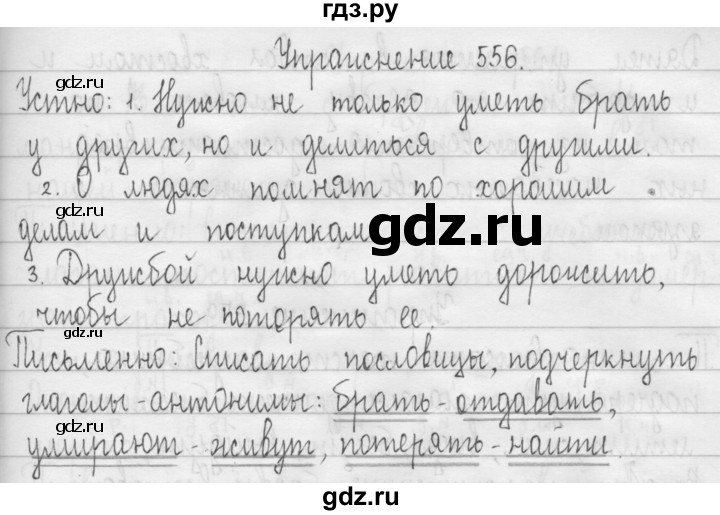 гдз.ру
Упражнение 556.
gdz.ru
gdz.ru
Устно: 1. Нужно не только уметь брать
у других, но и делиться с другими.
gdz.ru
gdz.ru
2. О людях помнят по хорошим
gdz.ru
делам и поступкам
3. Дружбой нужно уметь дорожить,
чтобы не потерять ее.
gdz.ru
gdz.ru
Письменно: Списать пословицы, подчеркнуть
глаголы-антонимы: брать - отдавать,
gdz.ru
gdz.ru
умирают - живут, потерять - найти
gdz.ru